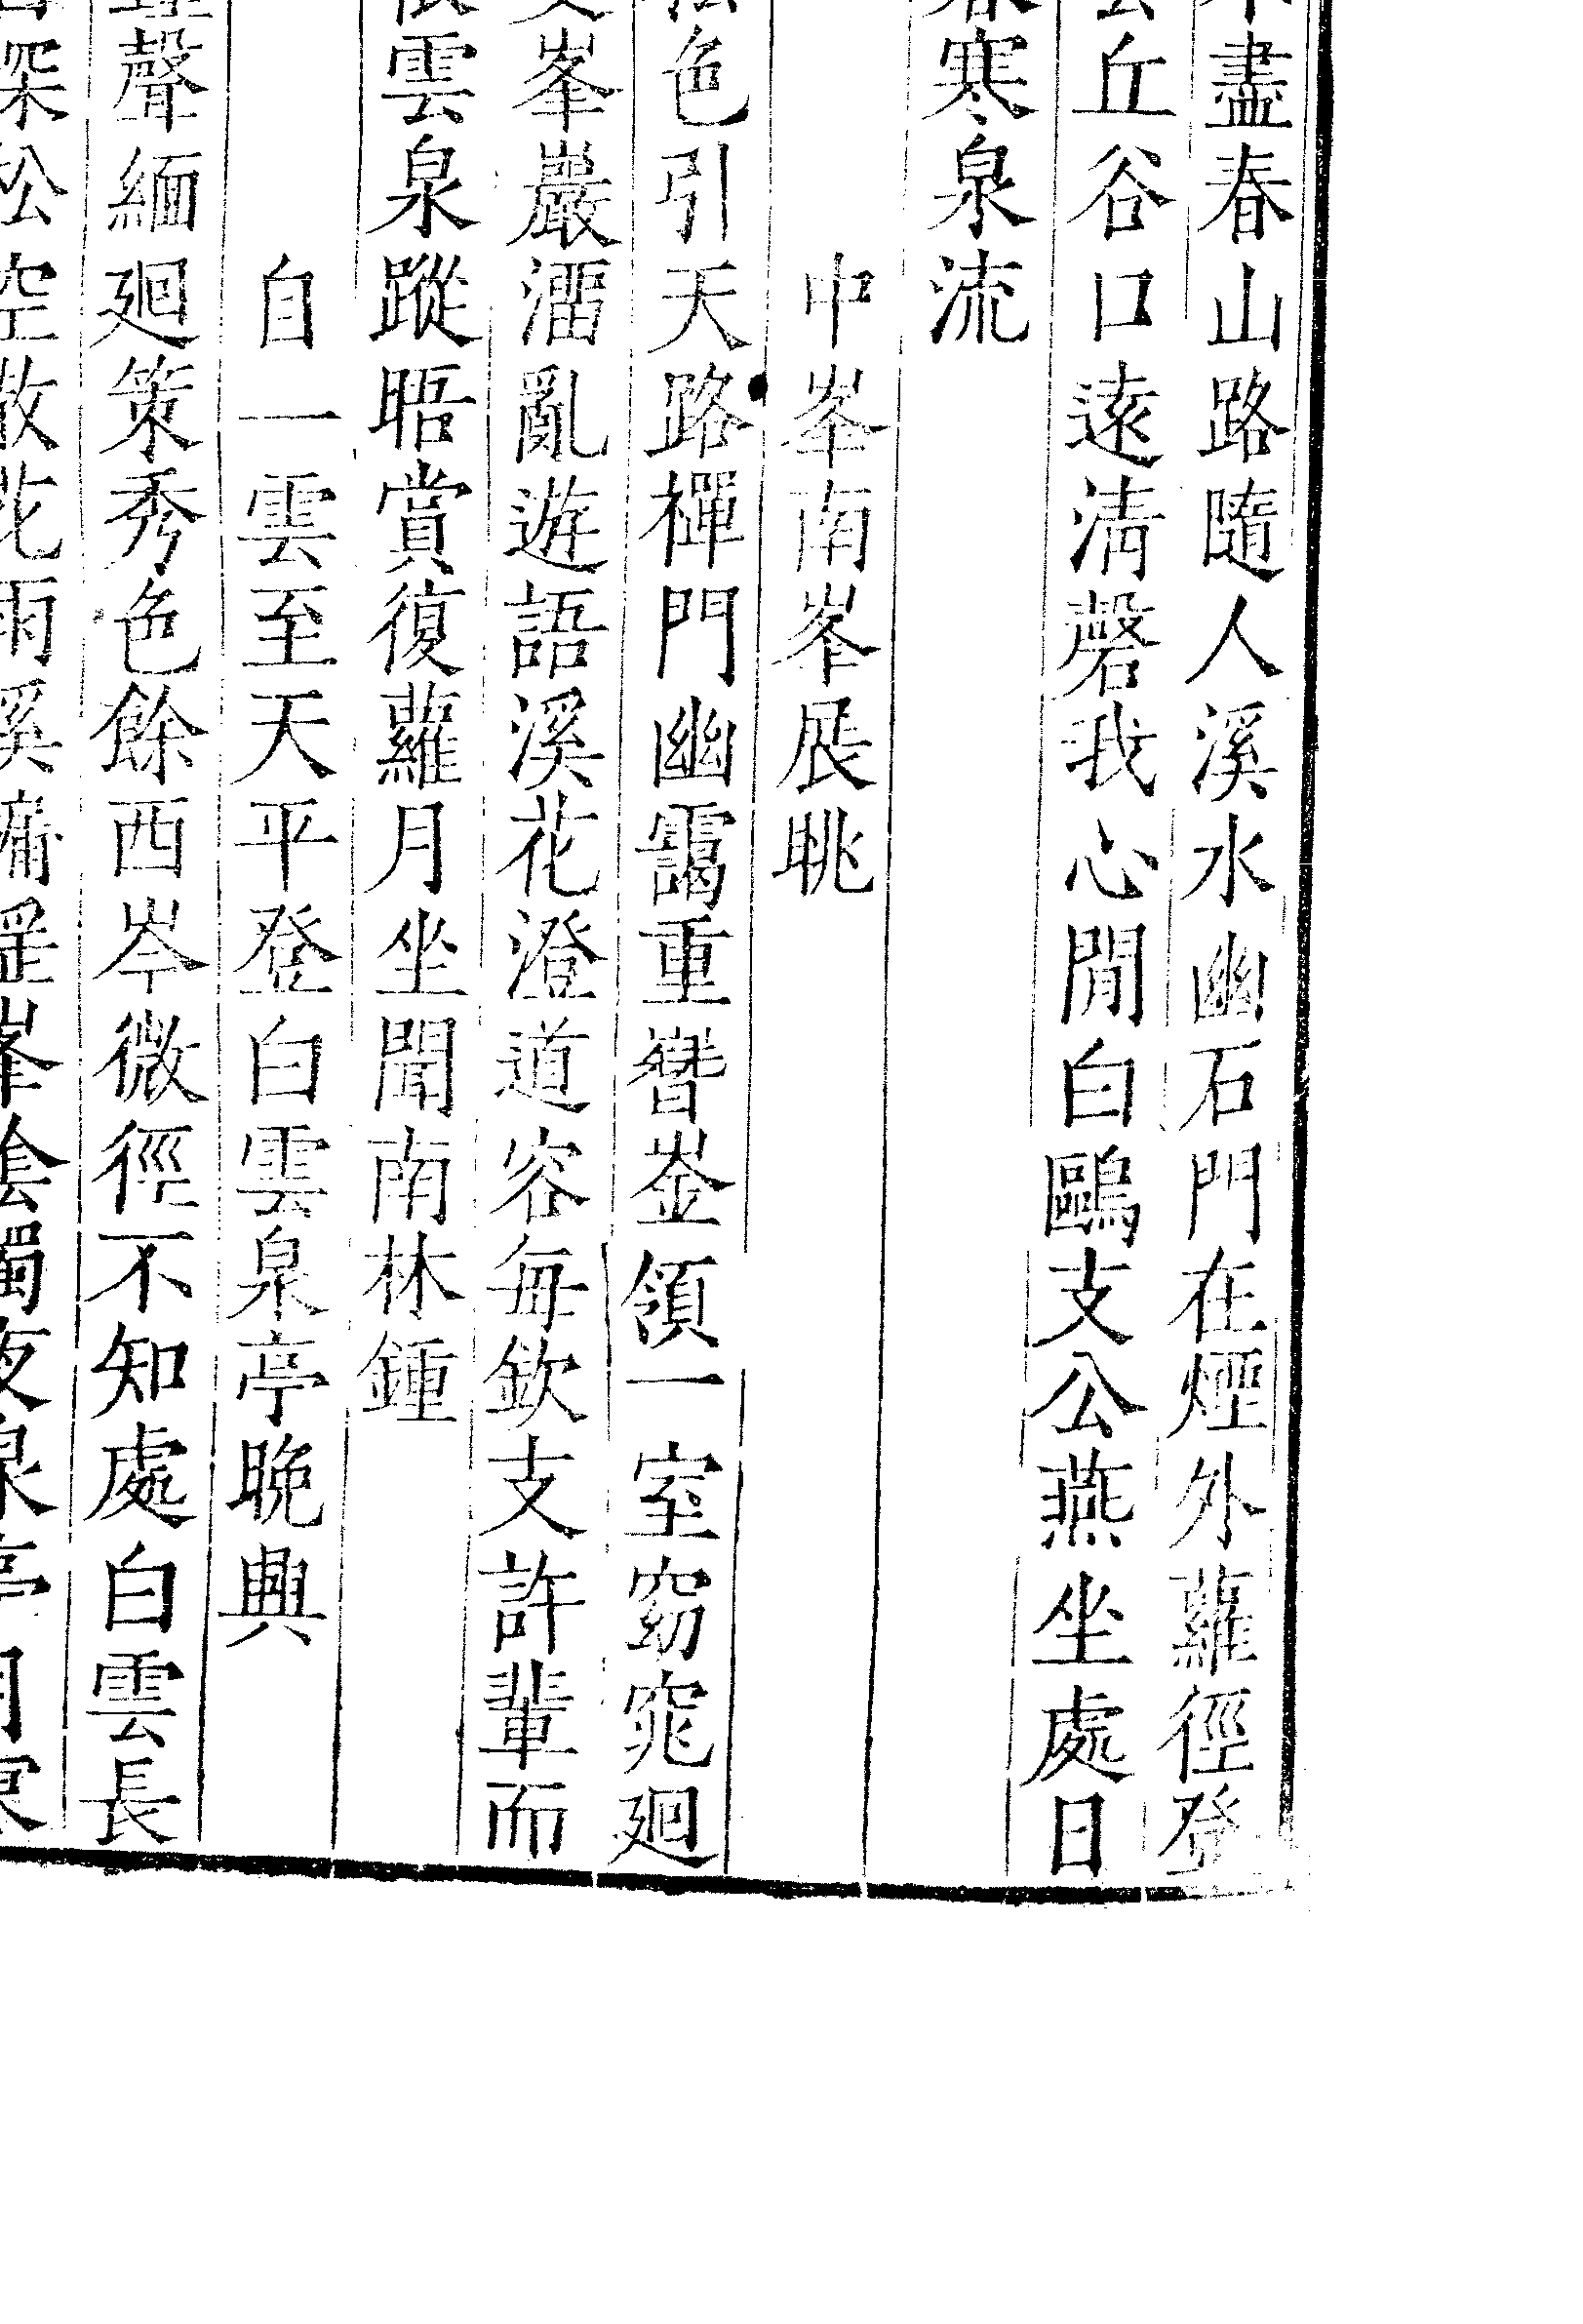 盡春山路隨人溪水幽石門在煙外蘿徑登
丘谷口遠清磬我心閒白鷗支公燕坐處日
寒泉流
中峯南峯展眺
色引天路禪門幽靄重朁崟領一室窈窕廻
峯巖澑亂遊語溪花澄道容每欽支許輩而
雲泉蹤晤賞復蘿月坐聞南林鍾
自一雲至天平登白雲泉亭晚興
聲緬廻策秀色餘西岑微徑不知處白雲長
深松空散花雨溪